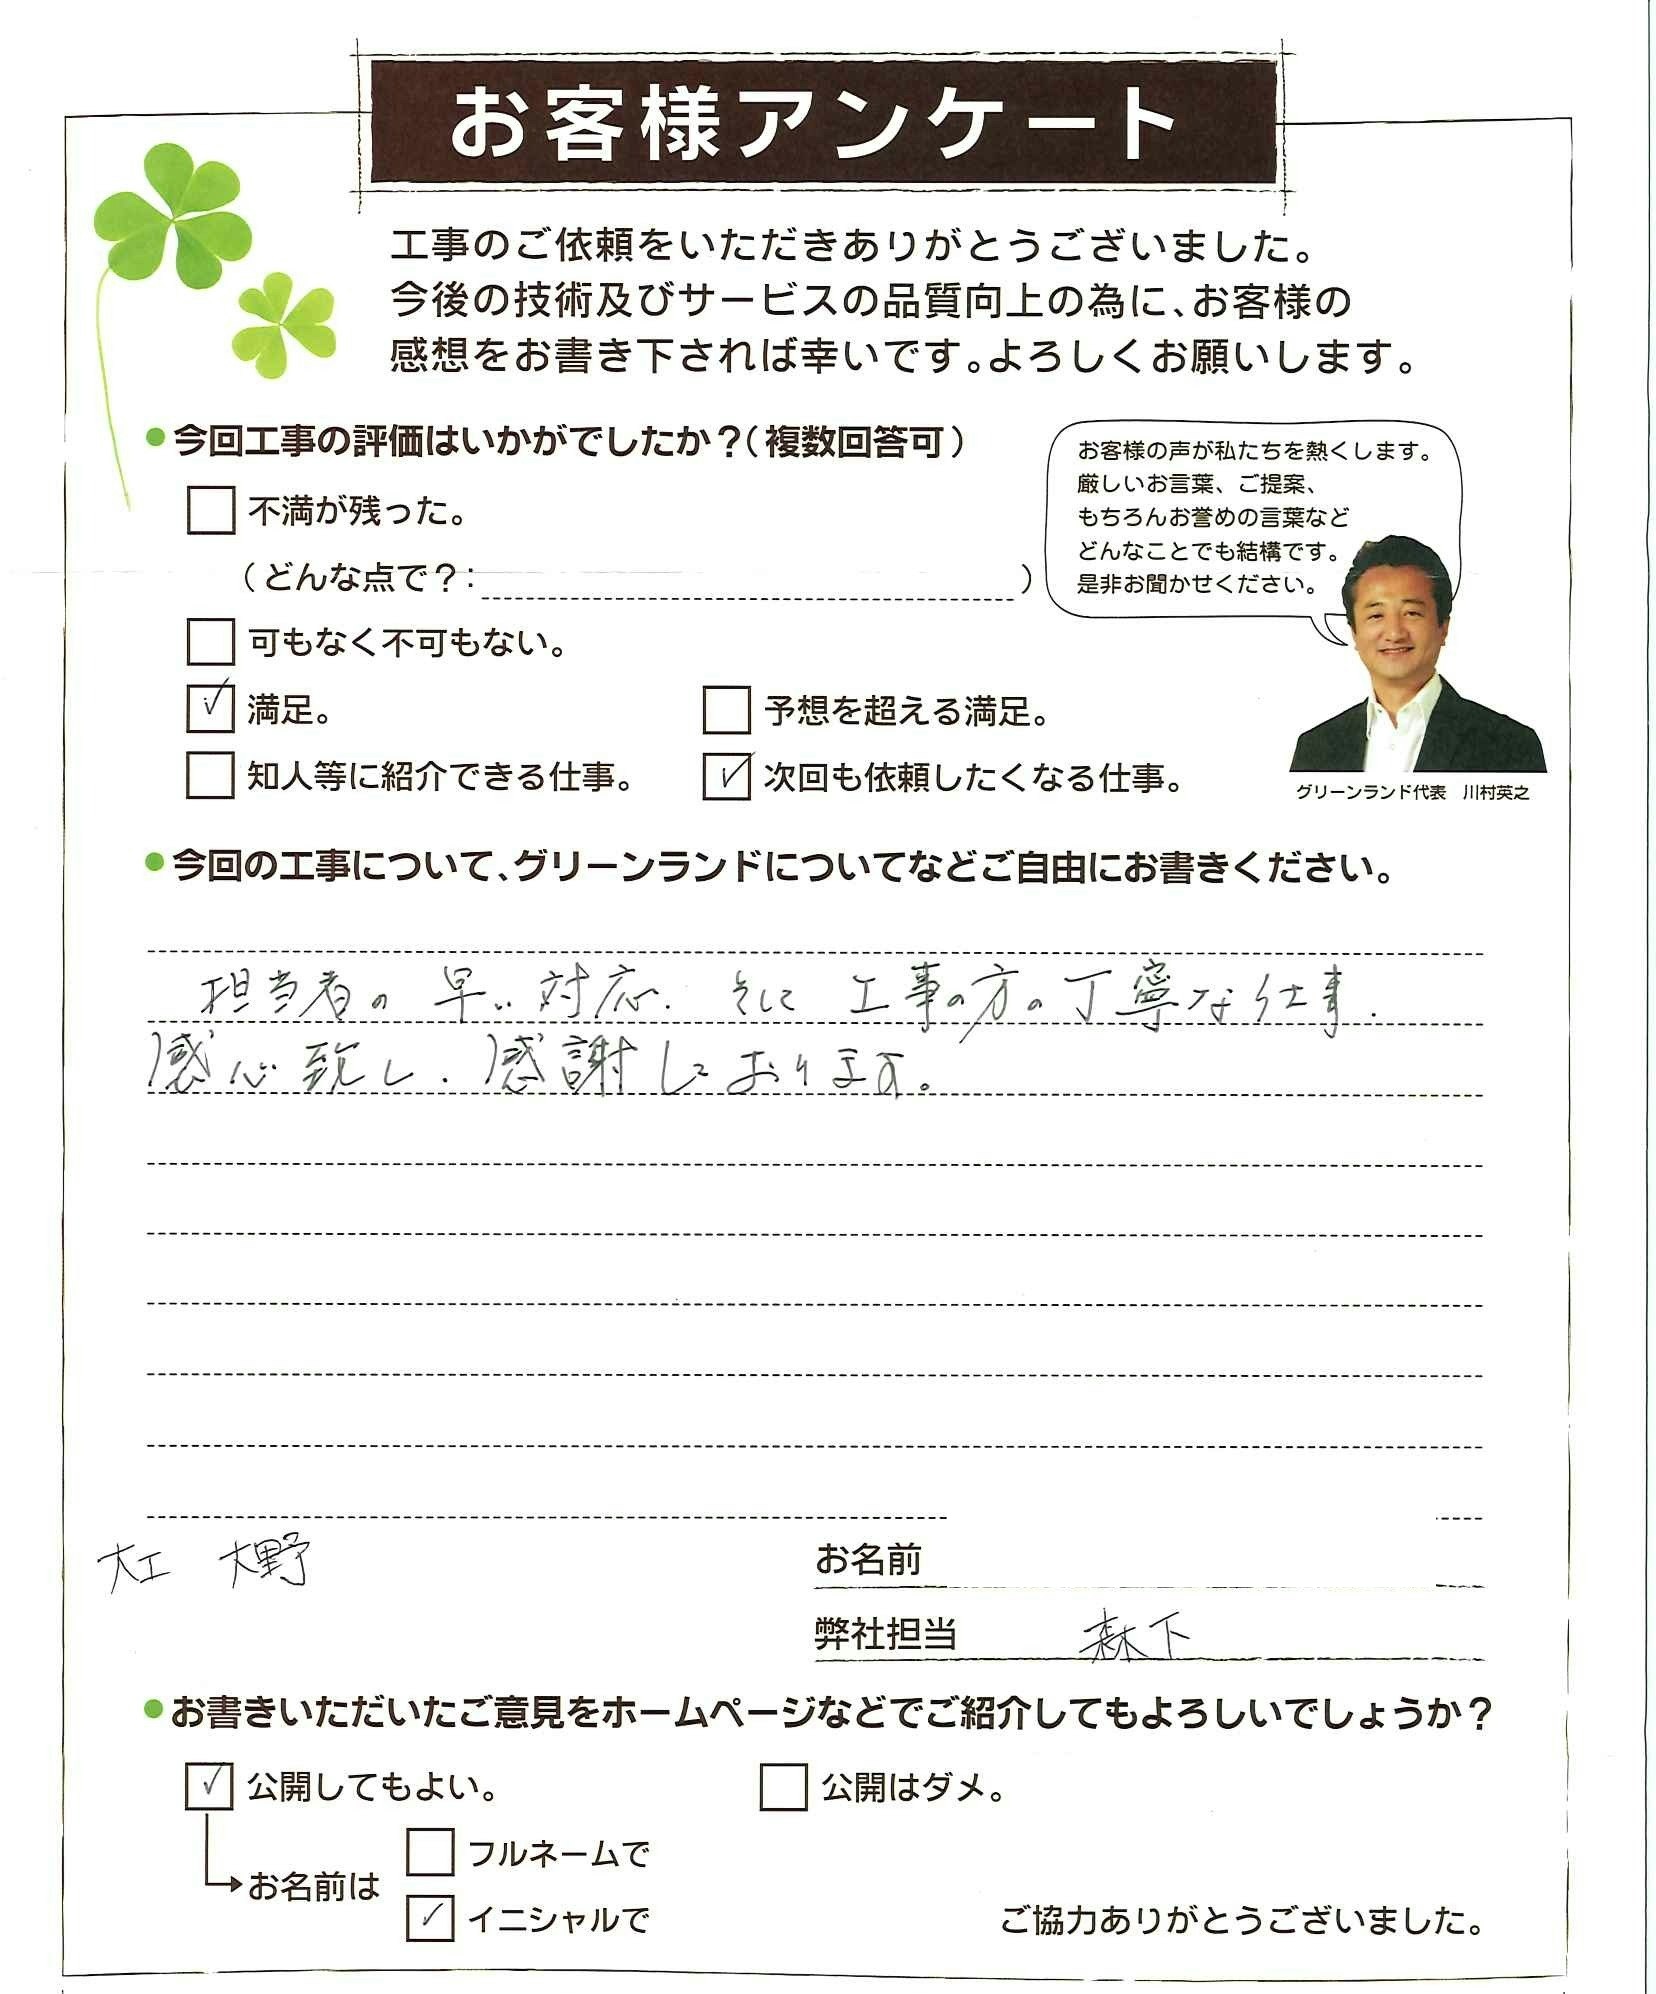 お客様アンケート
工事のご依頼をいただきありがとうございました。
今後の技術及びサービスの品質向上の為に、お客様の
感想をお書き下されば幸いです。よろしくお願いします。
●今回工事の評価はいかがでしたか？（複数回答可）
不満が残った。
（どんな点で？: ）
可もなく不可もない。
✓ 満足。
予想を超える満足。
知人等に紹介できる仕事。
✓ 次回も依頼したくなる仕事。
お客様の声が私たちを熱くします。
厳しいお言葉、ご提案、
もちろんお誉めの言葉など
どんなことでも結構です。
是非お聞かせください。
グリーンランド代表　川村英之
●今回の工事について、グリーンランドについてなどご自由にお書きください。
担当者の早い対応、そして工事の方の丁寧な仕事、
感心致し、感謝しております。
大工　大野
お名前
弊社担当　森下
●お書きいただいたご意見をホームページなどでご紹介してもよろしいでしょうか？
✓ 公開してもよい。
公開はダメ。
お名前は
フルネームで
✓ イニシャルで
ご協力ありがとうございました。